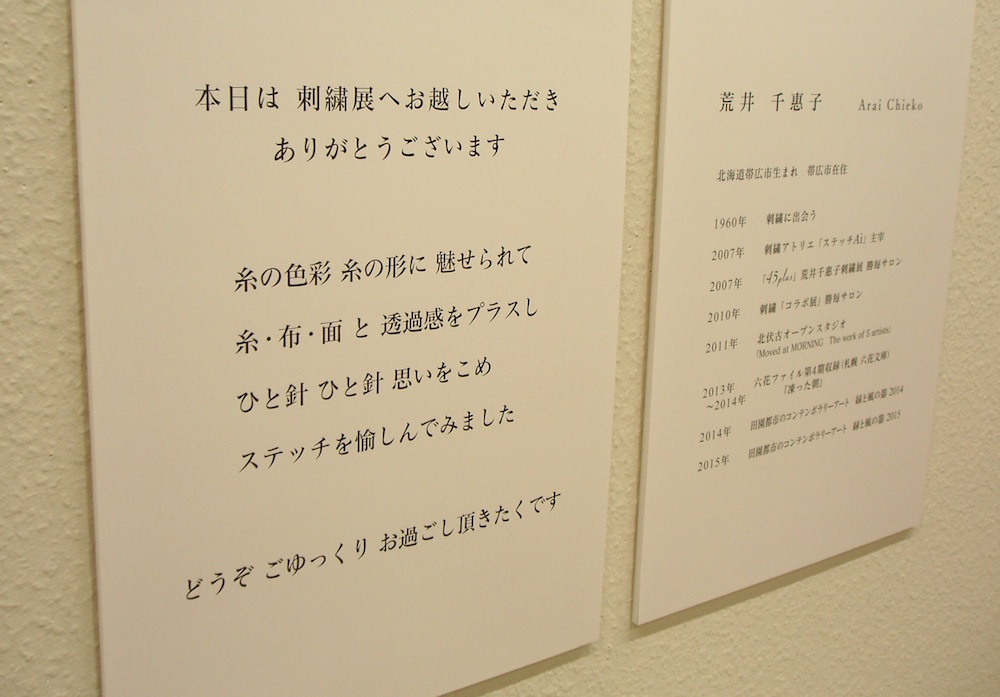 本日は 刺繍展へお越しいただき
ありがとうございます
糸の色彩 糸の形に 魅せられて
糸・布・面 と 透過感をプラスし
ひと針 ひと針 思いをこめ
ステッチを愉しんでみました
どうぞ ごゆっくり お過ごし頂きたくです
荒井 千惠子 Arai Chieko
北海道帯広市生まれ 帯広市在住
1960年 刺繍に出会う
2007年 刺繍アトリエ「ステッチAi」主宰
2007年 「45plus」荒井千惠子刺繍展 勝毎サロン
2010年 刺繍「コラボ展」勝毎サロン
2011年 北伏古オープンスタジオ
「Moved at MORNING The work of 5 artists」
2013年 六花ファイル第4期収録(札幌 六花文庫)
～2014年 『凍った朝』
2014年 田園都市のコンテンポラリーアート 緑と風の器 2014
2015年 田園都市のコンテンポラリーアート 緑と風の器 2015